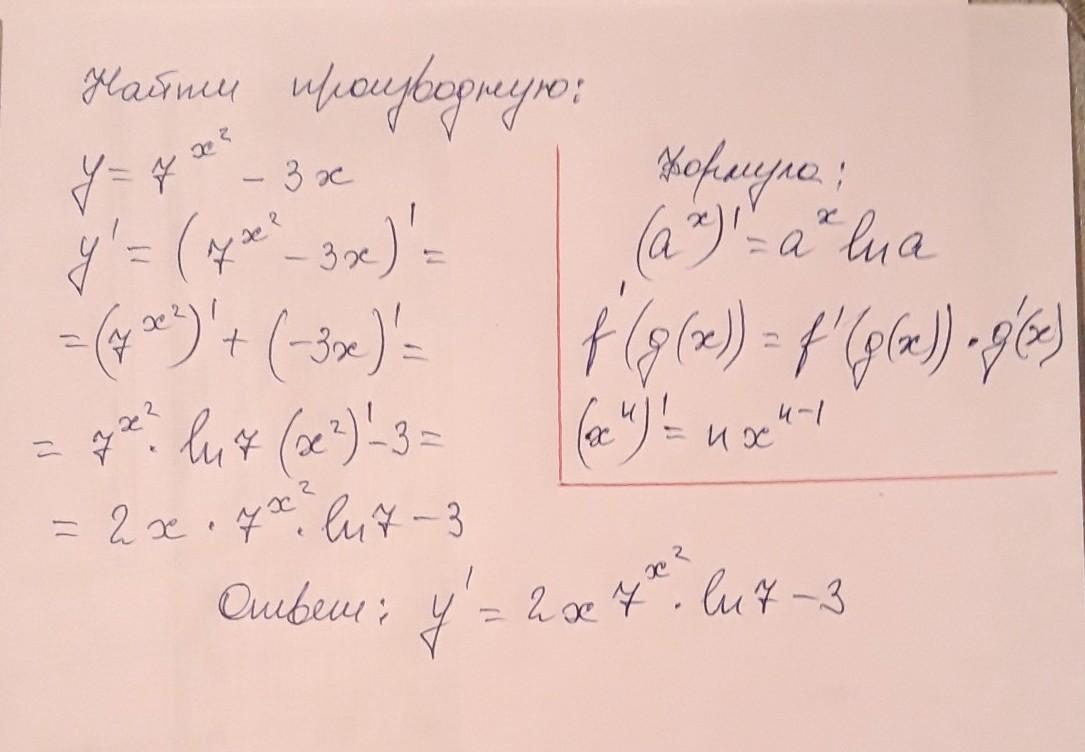 Найти производную:
y = 7^{x^2} - 3x
y' = (7^{x^2} - 3x)' =
= (7^{x^2})' + (-3x)' =
= 7^{x^2} · ln 7 (x^2)' - 3 =
= 2x · 7^{x^2} · ln 7 - 3
Ответ: y' = 2x 7^{x^2} · ln 7 - 3
Формула:
(a^x)' = a^x ln a
f'(g(x)) = f'(g(x)) · g'(x)
(x^n)' = n x^{n-1}